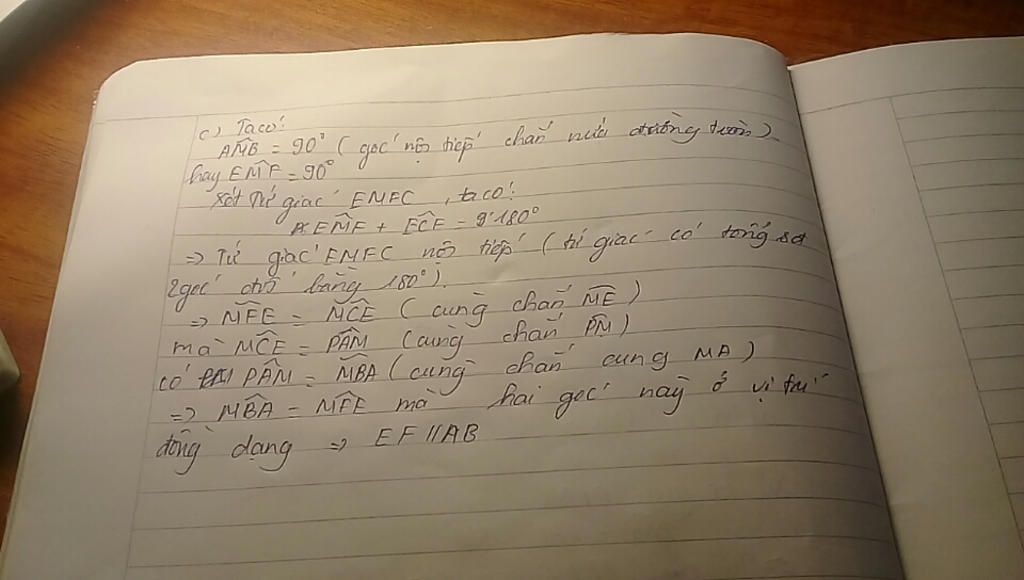 c) Ta có:
AM̂B = 90° (góc nội tiếp chắn nửa đường tròn)
hay EM̂F = 90°
Xét Tứ giác EMFC, ta có:
EM̂F + EĈF = 180°
=> Tứ giác EMFC nội tiếp (tứ giác có tổng số
2 góc đối bằng 180°).
=> MF̂E = MĈE (cùng chắn ME)
mà MĈE = PÂM (cùng chắn PM)
có PÂM = MB̂A (cùng chắn cung MA)
=> MB̂A = MF̂E mà hai góc này ở vị trí
đồng dạng => EF // AB